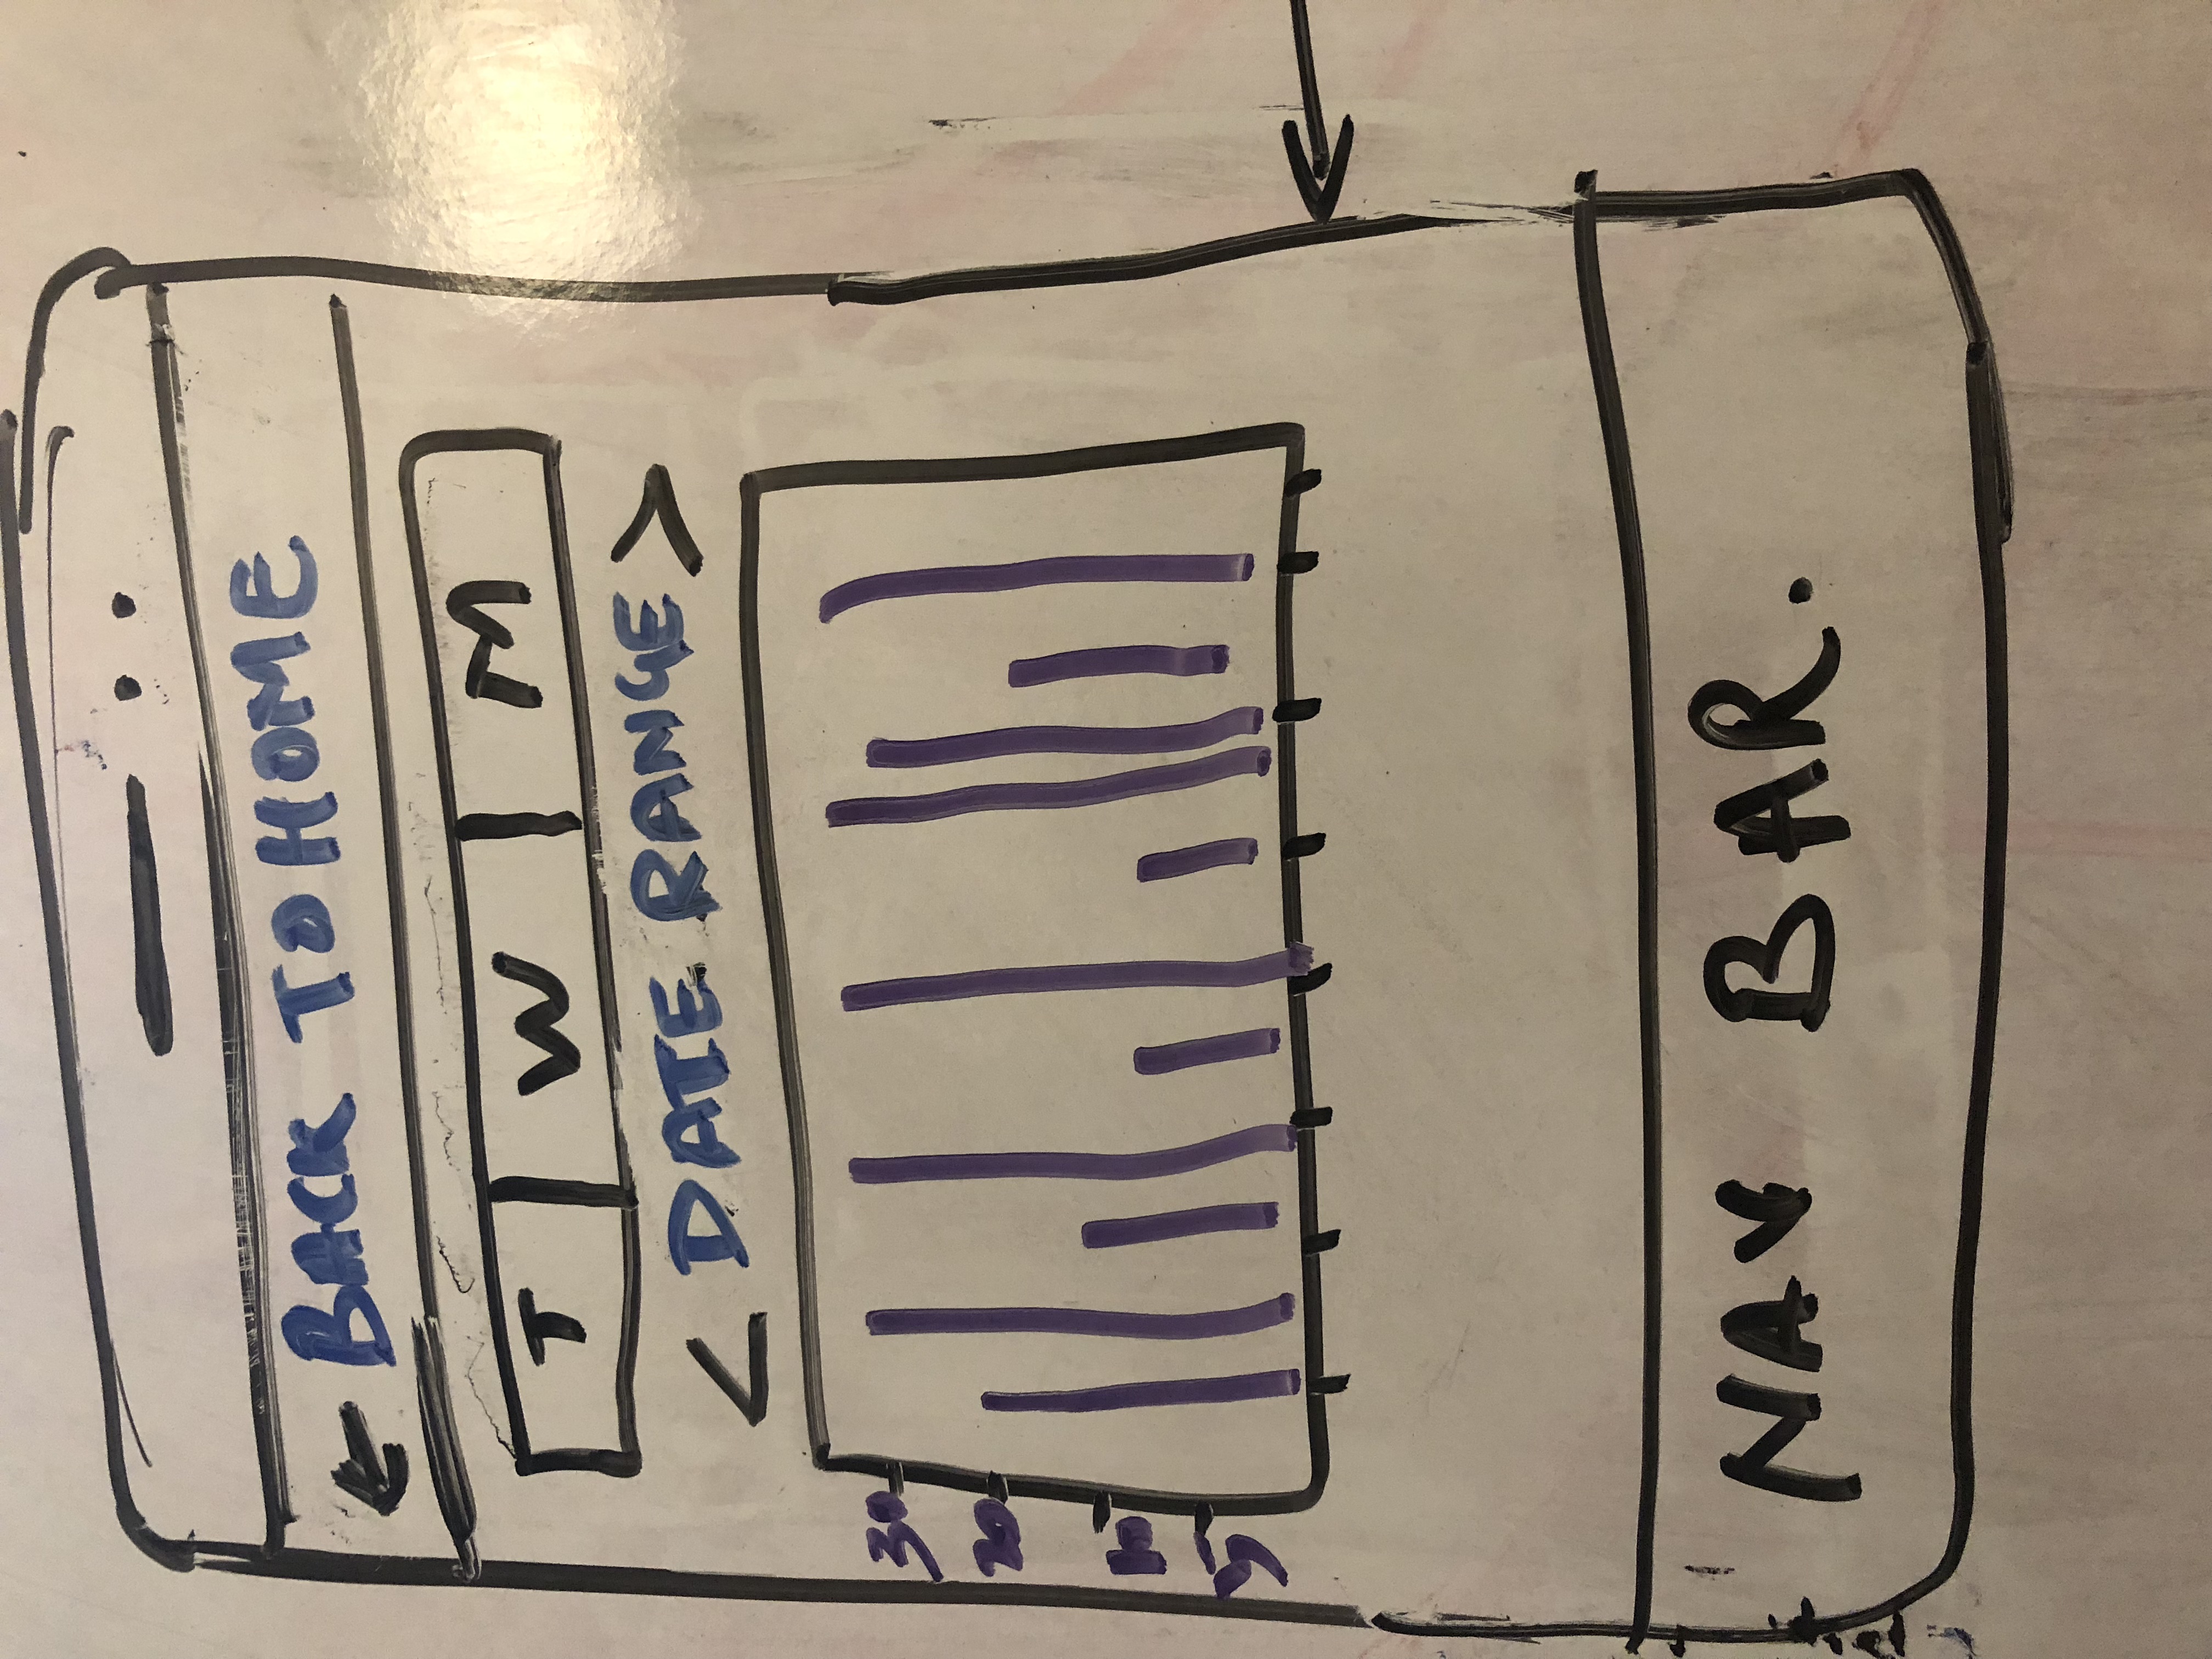 ← BACK TO HOME
T W M
< DATE RANGE >
30
20
10
5
NAV BAR.